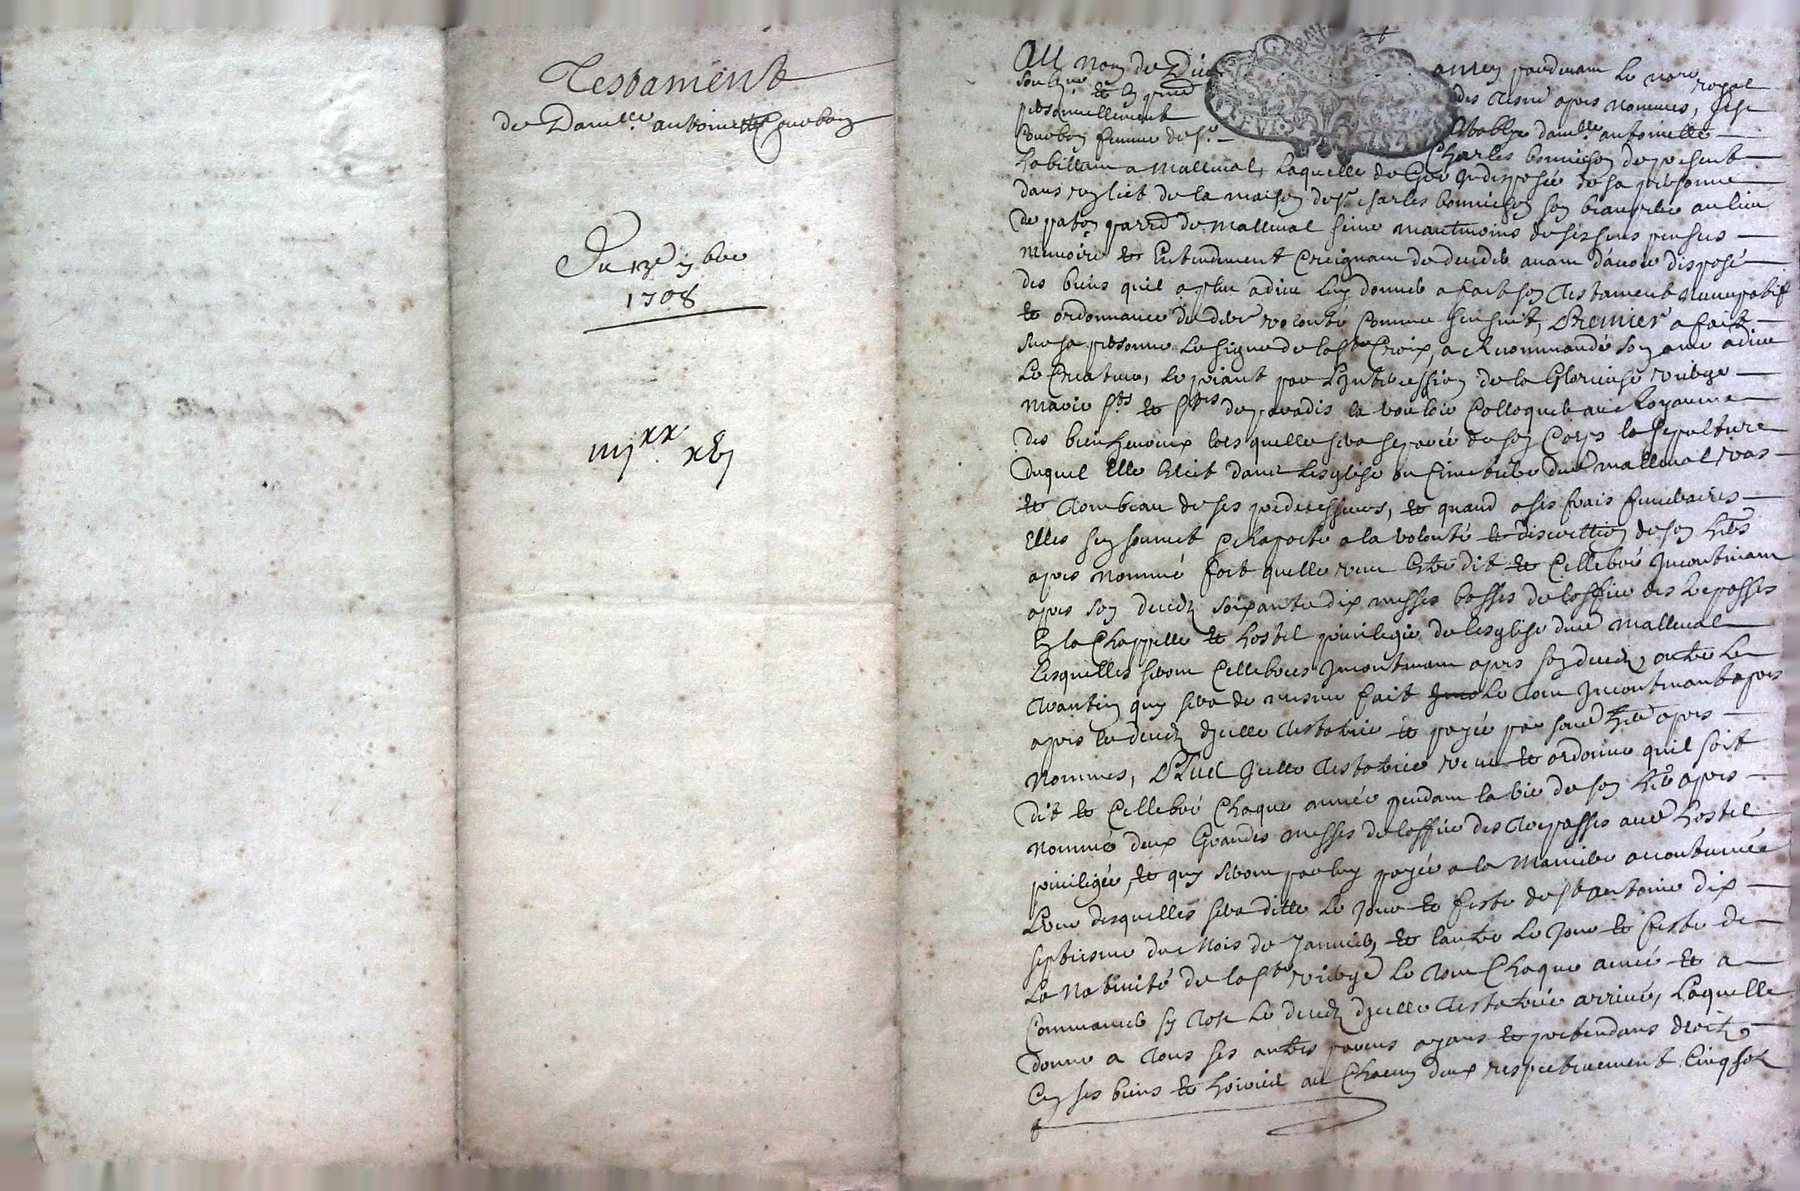 Testament
de Dam.lle antoinette Courbon
Du 13e 7bre
1708
iiijxx xvj
AU Nom de Dieu amen pardevant le No.re royal
soub.ne et en pnce des tesm. apres nommés, s'est
personnellement establye dam.lle antoinette
Courbon femme de s.r Charles bonnieson de present
habittant a Malleval, laquelle de Gré Indisposée de sa personne
dans un lict de la maison de s.r charles bonnieson son beaupere au lieu
de parr.e de Malleval saine neantmoins de ses sens pensées
memoire et Entendement Creignant de deceder avant davoir disposé
des biens quil a plu a dieu luy donner a fait son testament Nuncupatif
et ordonnance de der.e volonté Comme sensuit, PRemier a fait
sur sa personne le signe de la s.te Croix, a Recommandé son ame a dieu
Le Createur, le priant par L'Intercession de la Glorieuse vierge
Marie s.ts et s.tes de paradis la vouloir Colloquer au Royaume
des bienheureux lors quelle sera separée de son Corps la sepulture
duquel Elle Elict dans Lesglise ou Cimetiere dud. malleval vas
et tombeau de ses predecesseurs, et quand a ses frais funeraires
Elles sen soumet & raporte a la volonté et discrettion de son her.
apres nommé fort quelle veut Estre dit et Cellebré Incontinant
apres son deces soixante dix messes basses de loffice des trepassés
En la Chappelle et hostel privilegié de lesglise dud. Malleval
Lesquelles seront Cellebrees Incontinant apres son deces, outre Le
trantin quy sera de mesme fait le tout Incontinant apres
apres le deces djcelle testatrice et payé par son her. apres
Nommés, PLUS Icelle testatrice veut et ordonne quil soit
dit et Cellebré Chaque année pendant la vie de son her. apres
nommé deux Grandes messes de loffice des trepassés aud. hostel
privilegié, et quy seront par luy payée a la Maniere accoutumée
L'une desquelles sera ditte le jour et feste de s.t antoine dix
septiesme du Mois de Janvier, et lautre Le jour et feste de
La Nativité de la s.te vierge Le tout Chaque année et a
Commancer sy tost Le deces djcelle testatrice arrivé, Laquelle
donne a tous ses autres parens ayans et pretendans droit
En ses biens et hoirie au Chacun deux respectivement Cinq sols